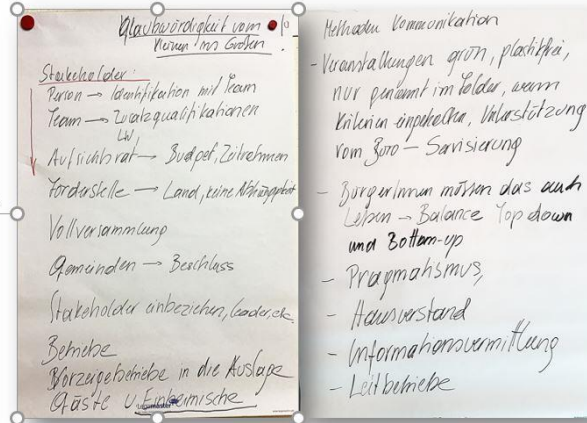 Glaubwürdigkeit vom
Kleinen ins Große
Stakeholder:
Person → Identifikation mit Team
Team → Zusatzqualifikationen
Aufsichtsrat → Budget, Zeitrahmen
Förderstelle → Land, keine Abhängigkeit
Vollversammlung
Gemeinden → Beschluss
Stakeholder einbeziehen, Leader, etc.
Betriebe
Vorzeigebetriebe in die Auslage
Gäste u. Einheimische
Methoden Kommunikation
- Veranstaltungen grün, plastikfrei,
nur genannt im Folder, wenn
Kriterien eingehalten, Unterstützung
vom Büro – Servisierung
- BürgerInnen müssen das auch
Leben → Balance Top down
und Bottom-up
- Pragmatismus,
- Hausverstand
- Informationsvermittlung
- Leitbetriebe